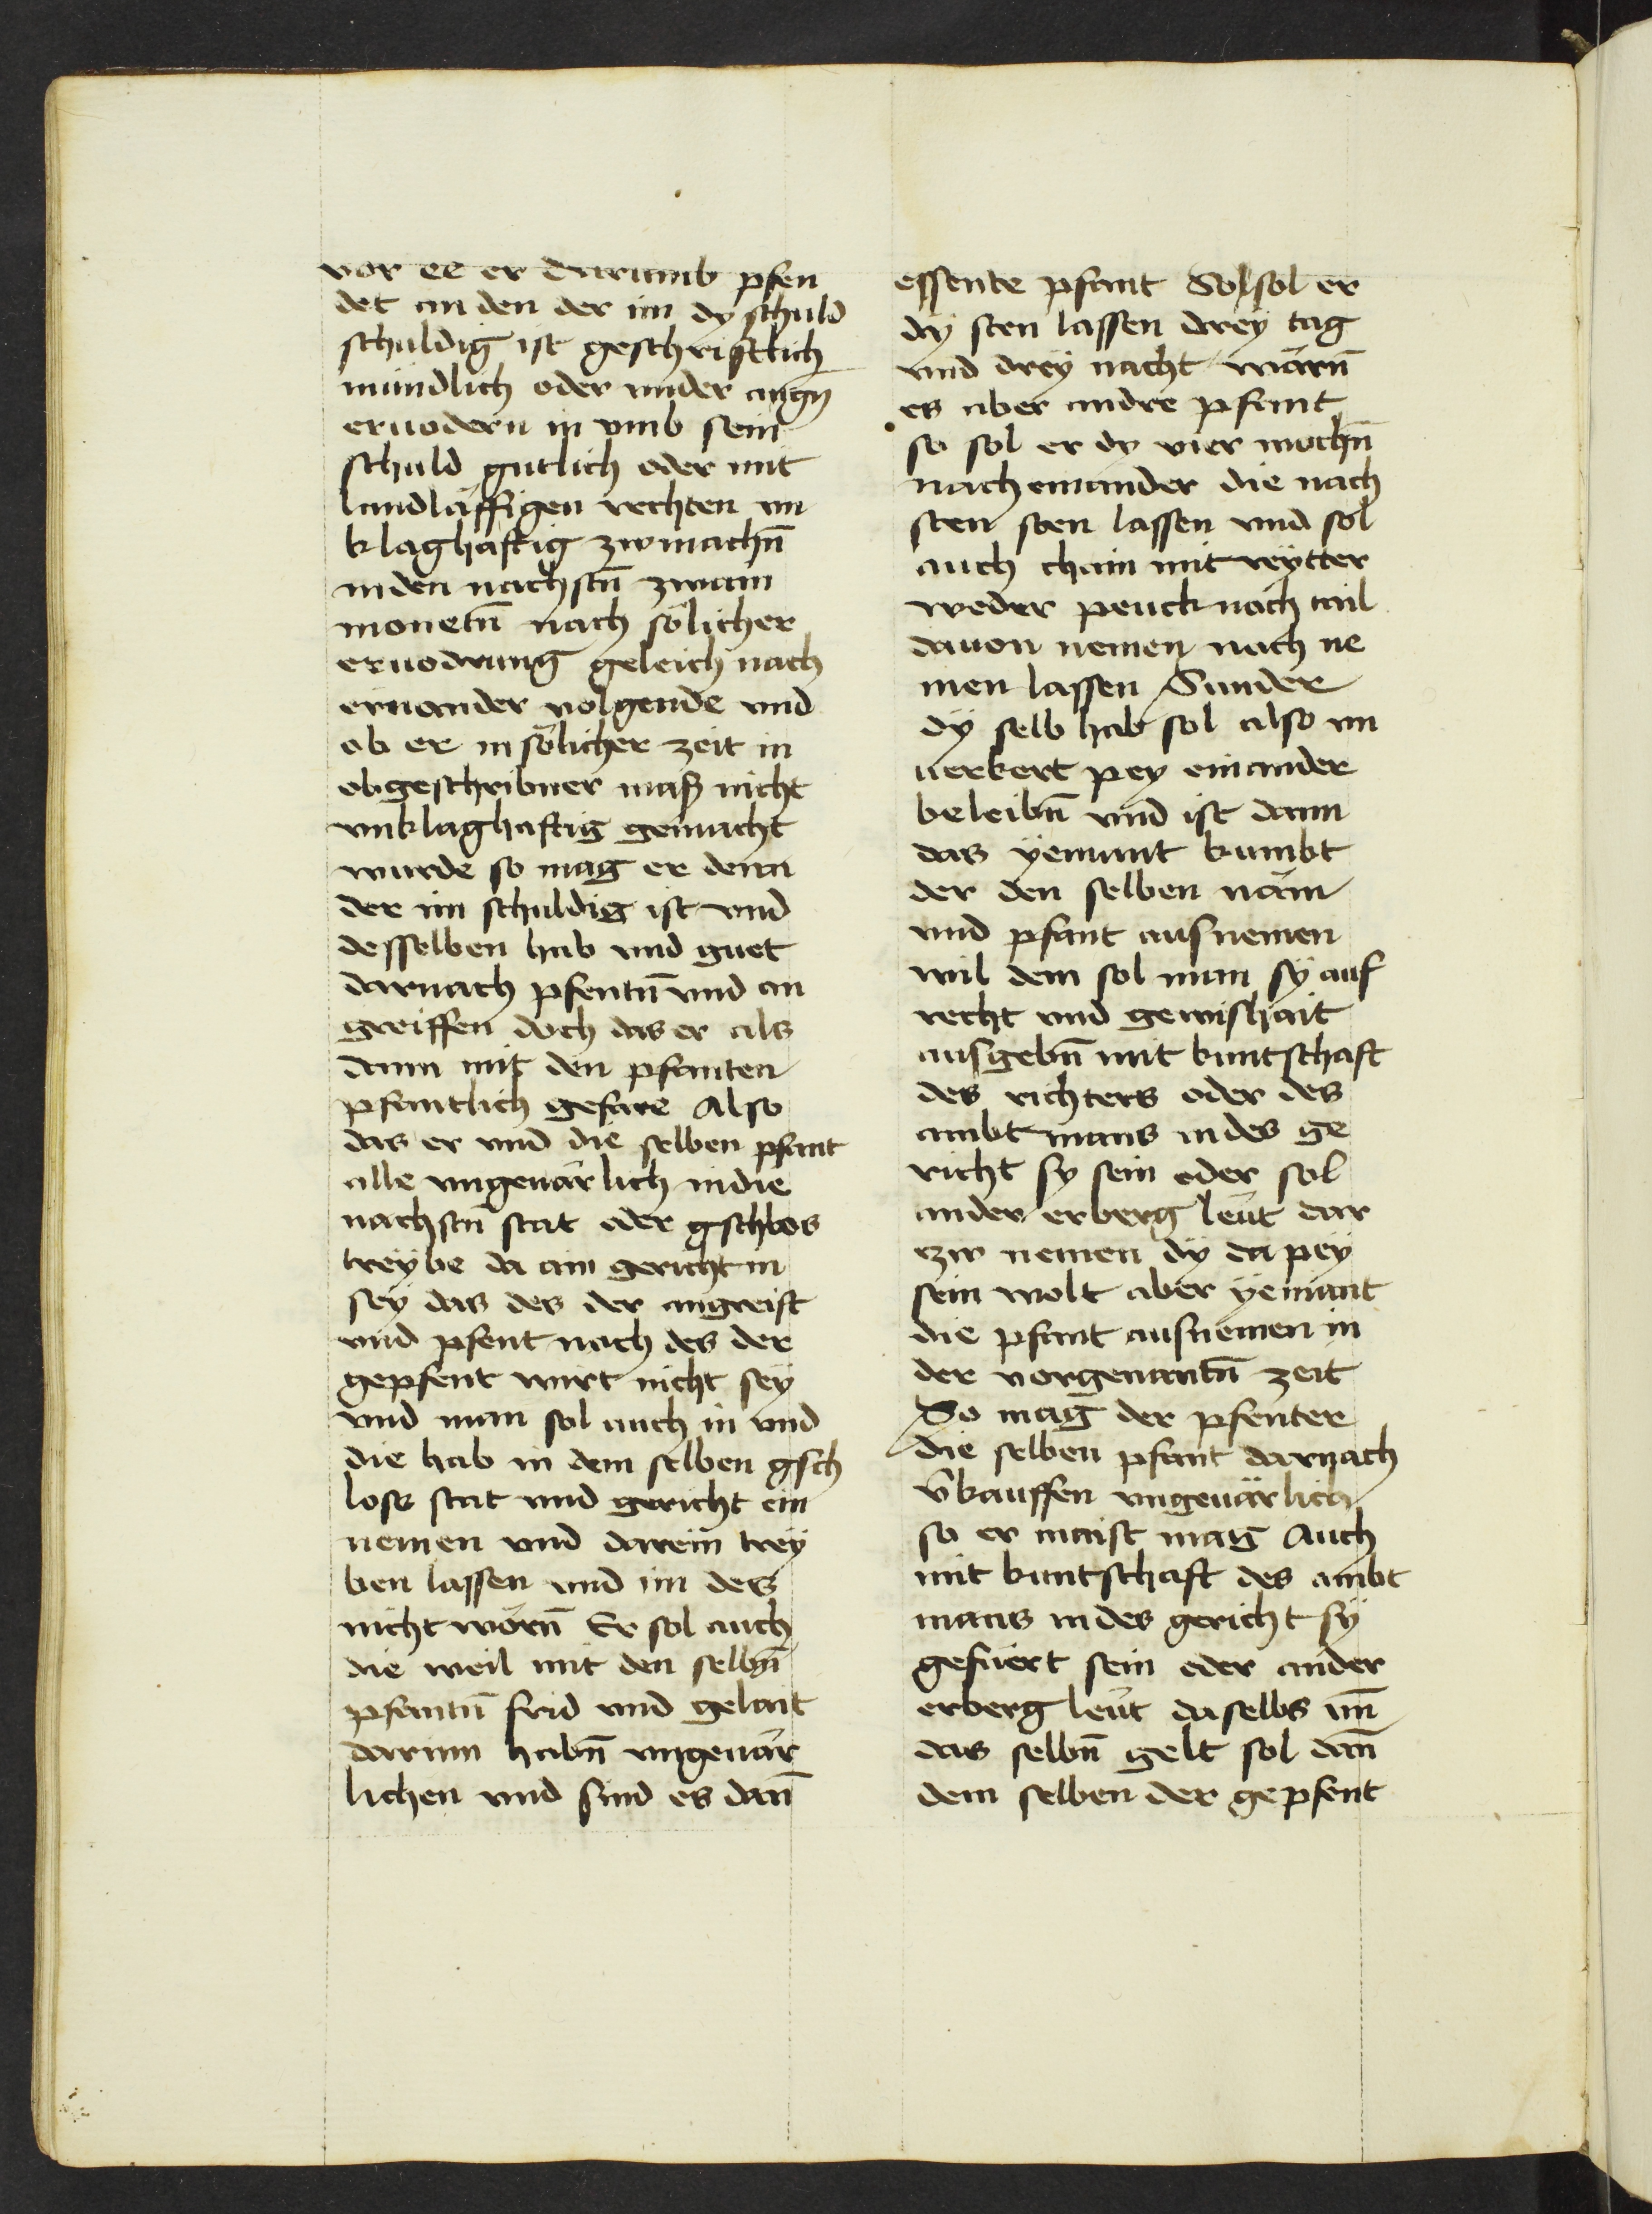 vor ee er darumb pfen
det an den der im dy schuld
schuldig ist geschriftlich
mündlich oder under augn̄
eruodern in vmb sein
schuld gutlich oder mit
landläffigen rechten vn
klaghäftig zwmachn̄
inden nachstn̄ zwain
monetn̄ nach sölicher
eruodrung geleich nach
einander uolgende vnd
ob er in sölicher zeit in
obgeschribner maß nicht
vnklaghaftig gemacht
wurde so mag er denn
der im schuldig ist vnd
desselben hab vnd guet
darnach pfentn̄ vnd an
greiffen doch das er als
dann mit den pfanten
pfantlich gefare Also
das er vnd die selben pfant
alle vngeuärlich indie
nachstn̄ stat oder gschlos
treybe da ain gericht in
sey das des der angreift
vnd pfent nach des der
gepfent wirt nicht sey
vnd man sol auch in vnd
die hab in dem selben gsch
loss stat vnd gericht ein
nemen vnd darein trey
ben lassen vnd im des
nicht wörn̄ Er sol auch
die weil mit den selbn̄
pfantn̄ frid vnd gelait
darinn habn̄ vngeuär
lichen vnd sind es dan̄
essente pfant So sol er
dy sten lassen drey tag
vnd drey nacht wärn̄
es aber andre pfant
so sol er dy vier wochn̄
nach einander die nach
sten sten lassen vnd sol
auch chain mit reytter
weder peuck noch tail
dauon nemen nach ne
men lassen Sunder
dy selb hab sol also vn
uerkert pey einander
beleibn̄ vnd ist dann
das yemant kumbt
der den selben näm
vnd pfant ausnemen
wil dem sol man sy auf
recht vnd gewishait
ausgebn̄ mit kuntschaft
des richters oder des
ambtmans indes ge
richt sy sein oder sol
ander erberg leut dar
czw nemen dy da pey
sein wolt aber yemant
die pfant ausnemen in
der vorgenantn̄ zeit
So mag der pfenter
die selben pfant darnach
v̄kauffen vngeuärlich
so er maist mag Auch
mit kuntschaft des ambt
mans indes gericht sy
gefüert sein oder ander
erberg leut daselbs vn̄
das selbn̄ gelt sol dan̄
dem selben der gepfent